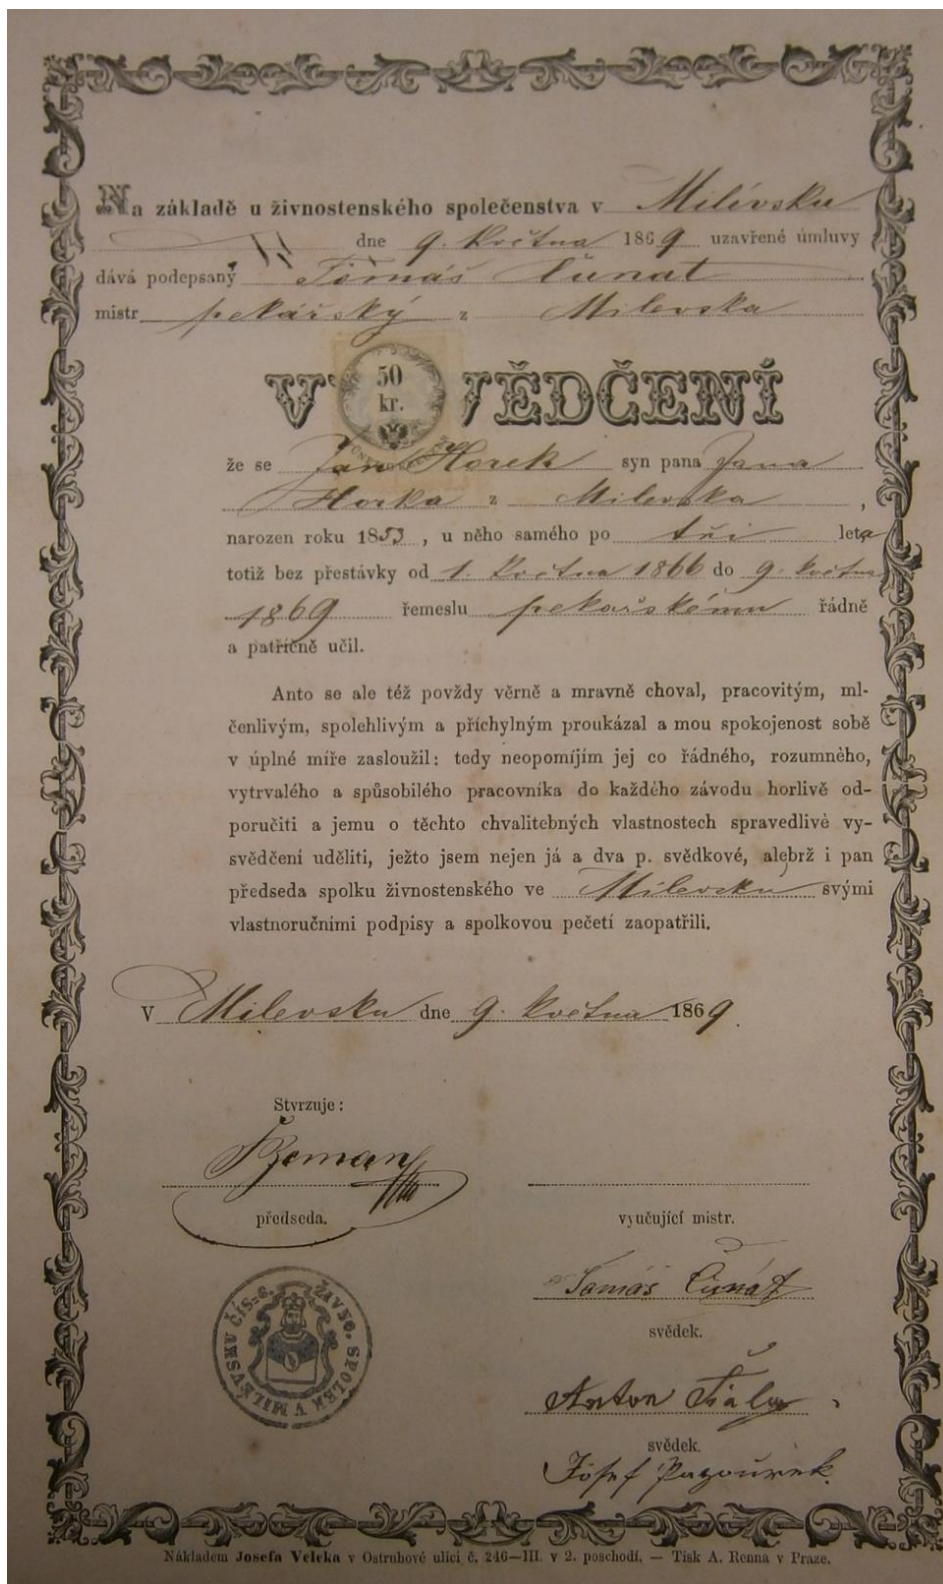 Na základě u živnostenského společenstva v Milévsku
dne 9. května 1869 uzavřené úmluvy
dává podepsaný Tomáš Čunat
mistr pekářský z Milevska
VYSVĚDČENÍ
50
kr.
že se Jan Horek syn pana Jana
Horka z Milevska,
narozen roku 1853, u něho samého po tři leta
totiž bez přestávky od 1. května 1866 do 9. května
1869 řemeslu pekařskému řádně
a patřičně učil.
Anto se ale též povždy věrně a mravně choval, pracovitým, ml-
čenlivým, spolehlivým a příchylným proukázal a mou spokojenost sobě
v úplné míře zasloužil: tedy neopomíjím jej co řádného, rozumného,
vytrvalého a spůsobilého pracovníka do každého závodu horlivě od-
poručiti a jemu o těchto chvalitebných vlastnostech spravedlivé vy-
svědčení uděliti, ježto jsem nejen já a dva p. svědkové, alebrž i pan
předseda spolku živnostenského ve Milevsku svými
vlastnoručními podpisy a spolkovou pečetí zaopatřili.
V Milevsku dne 9. května 1869.
Stvrzuje:
Zeman
předseda.
vyučující mistr.
Tomáš Čunát
svědek.
Anton
svědek.
Josef Pazourek.
ŽIVNO. SPOLEK V MILEVSKU ČÍS. 6.
Nákladem Josefa Veleka v Ostruhové ulici č. 246—III. v 2. poschodí. — Tisk A. Renna v Praze.